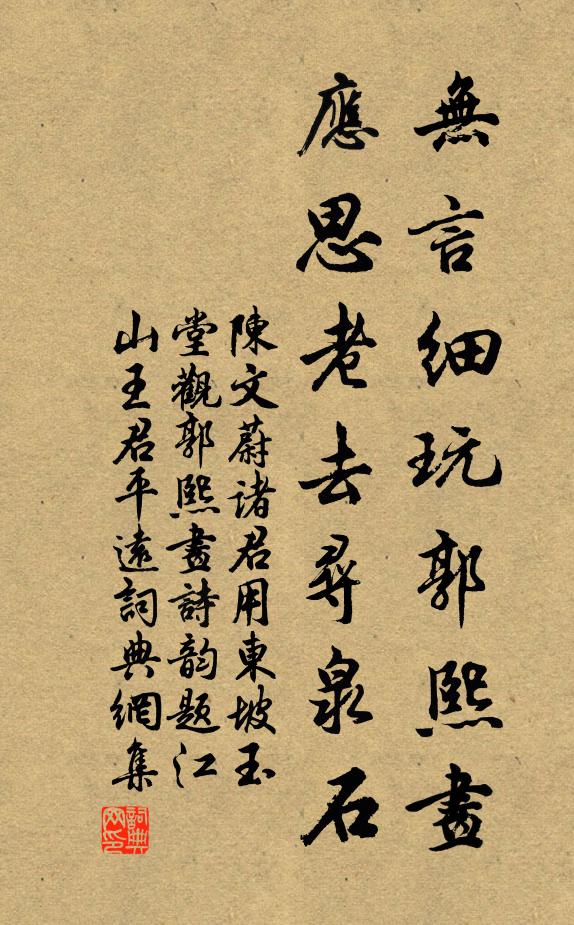 無言細玩郭熙畫
應思老去尋泉石
陳文蔚諸君用東坡玉
堂觀郭熙畫詩韵題江
山王君平遠詞典網集
詞典网印